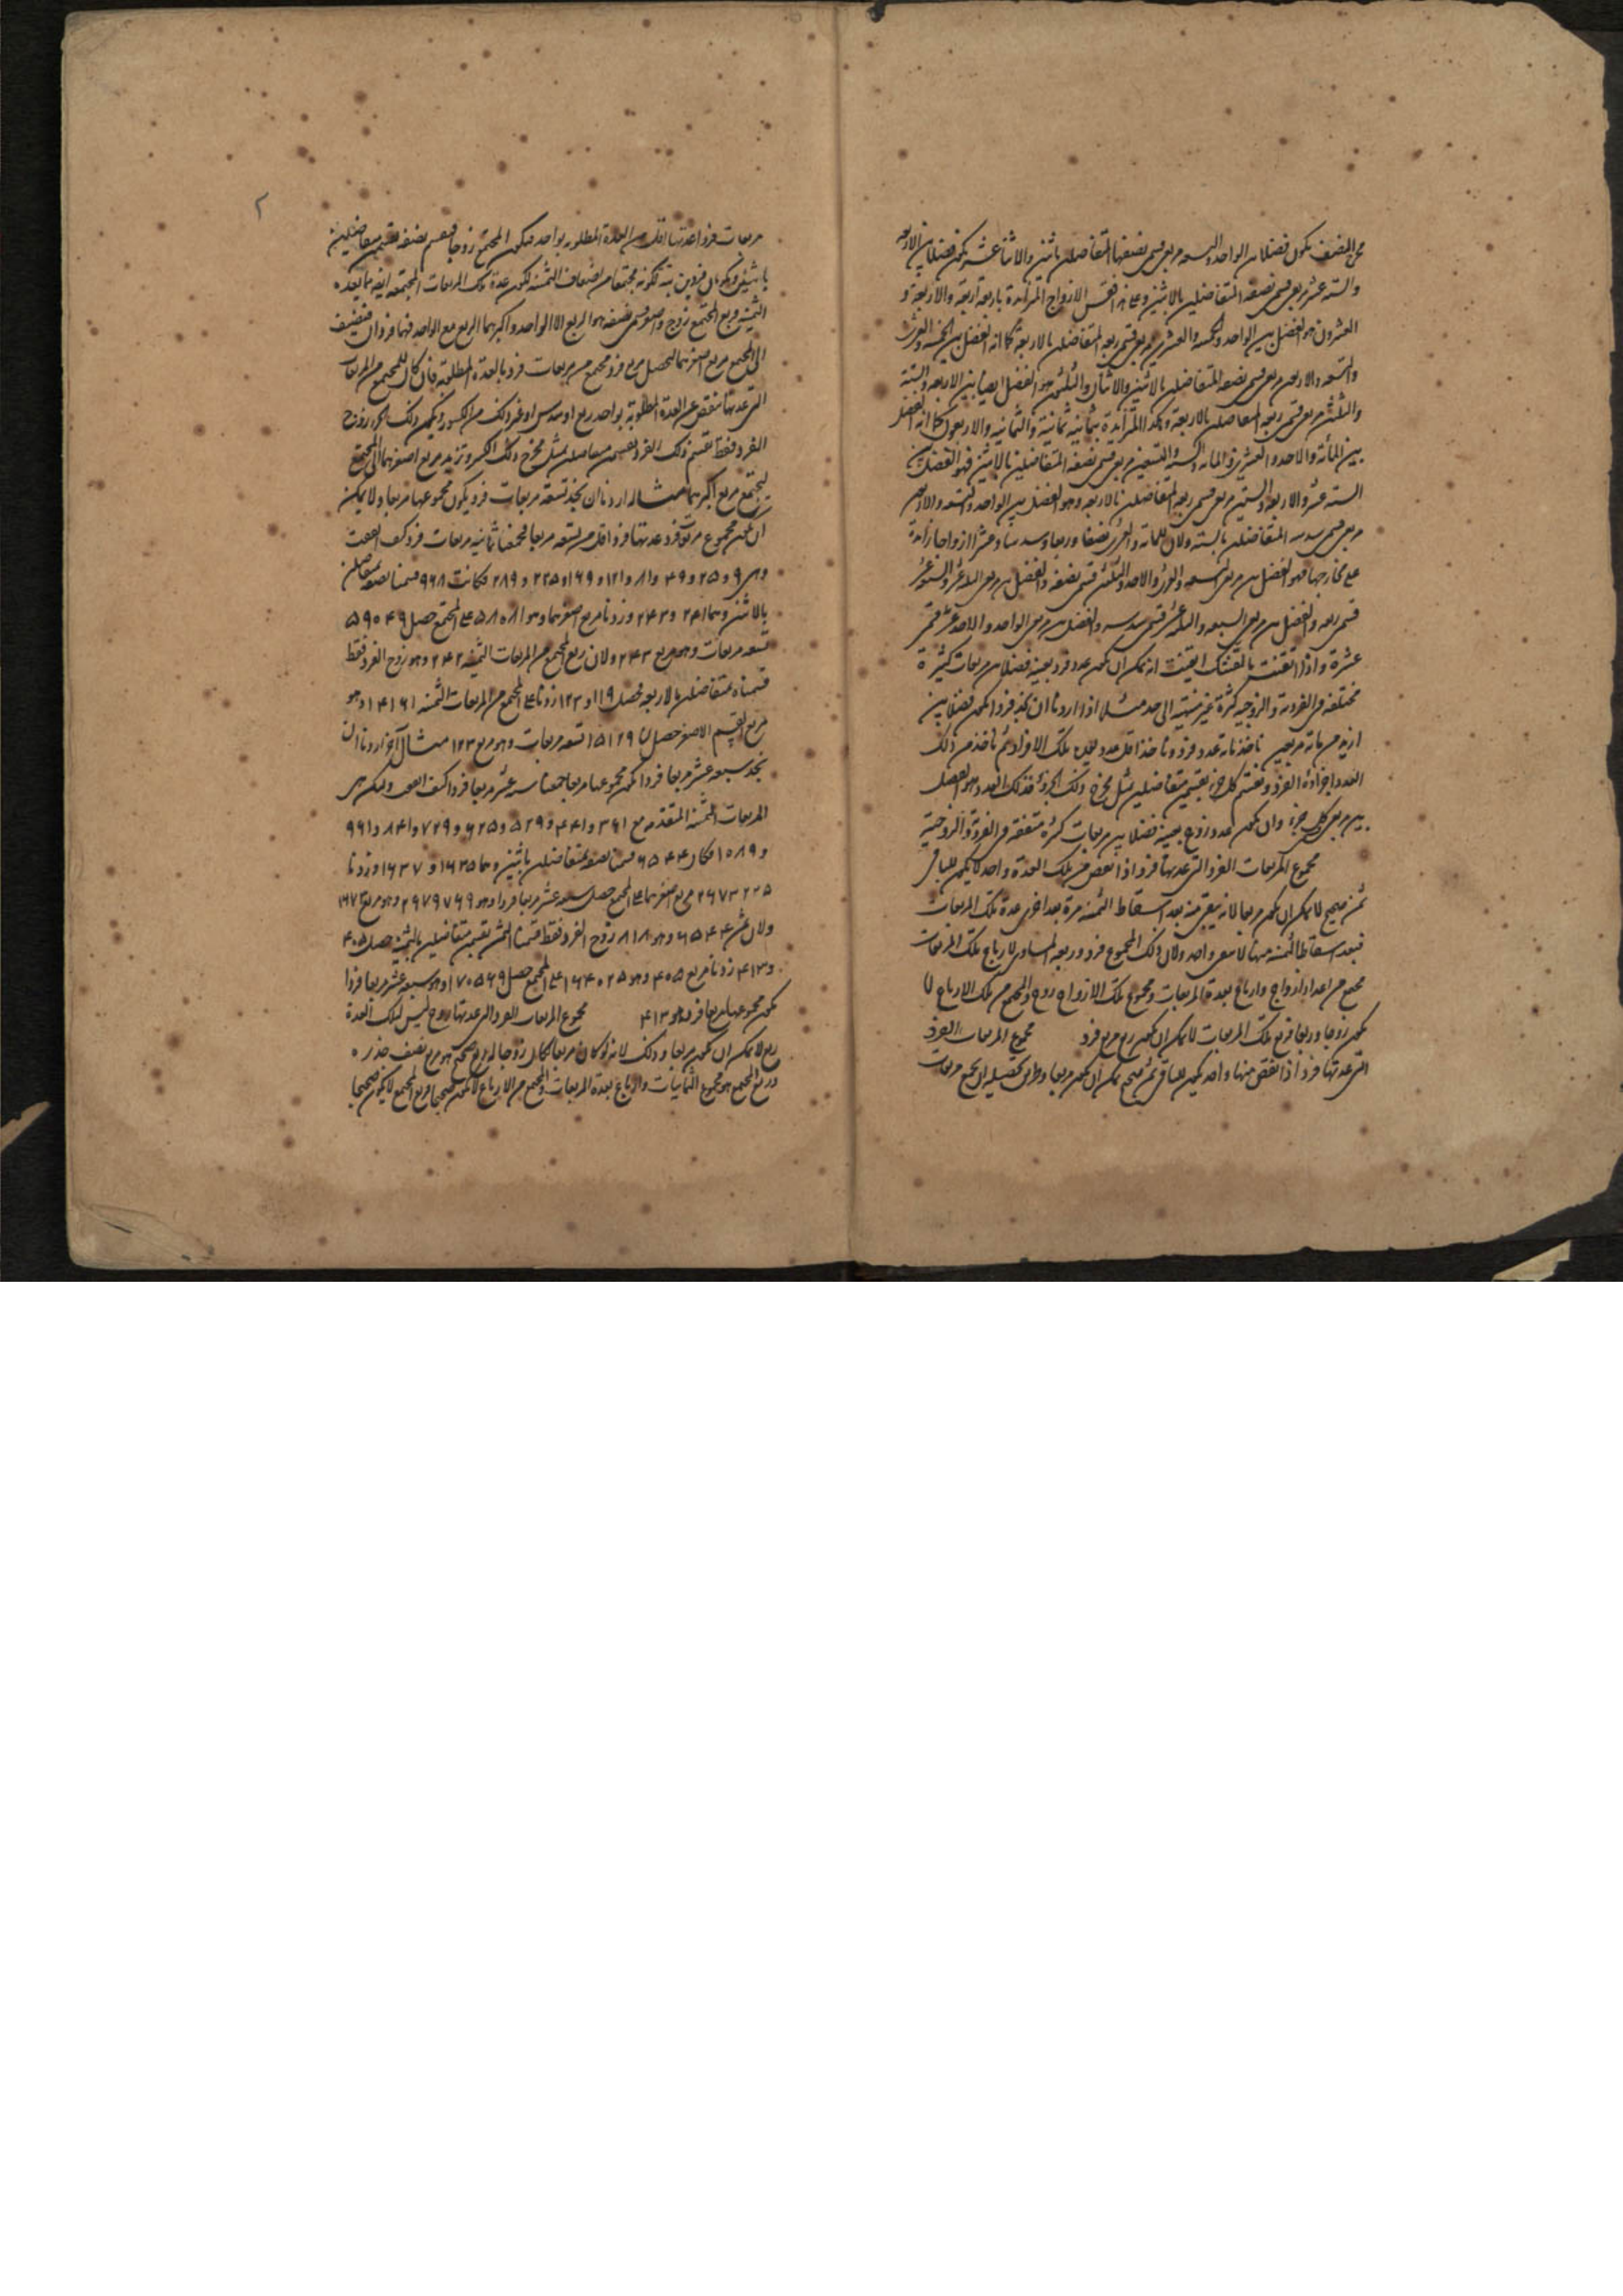 مخرج النصف يكون فضلا بين الواحد والتسعة مربعى قسمى نصفها المتفاضلين باثنين والاثنا عشر يكون فضلا بين الاربعة
والستة عشر مربعى قسمى نصفه المتفاضلين بالاثنين وعلى هذا فقس الازواج المتزايدة باربعة اربعة والاربعة و
العشرون هو الفضل بين الواحد والخمسة والعشرين مربعى قسمى ربعه المتفاضلين بالاربعة كما انه الفضل بين الخمسة والعشرين
والتسعة والاربعين مربعى قسمى نصفه المتفاضلين بالاثنين والاثنان والثلثون هو الفضل ايضا بين الاربعة والستة
والثلثين مربعى قسمى ربعه المتفاضلين بالاربعة وهكذا المتزايدة بثمانية ثمانية والثمانية والاربعون كما انه الفضل
بين المائة والاحد والعشرين والمائة والستة والتسعين مربعى قسمى نصفه المتفاضلين بالاثنين فهو الفضل بين
الستة عشر والاربعة والستين مربعى قسمى ربعه المتفاضلين بالاربعة وهو الفضل بين الواحد والتسعة والاربعين
مربعى قسمى سدسه المتفاضلين بالستة ولان للمائة والعشرين نصفا وربعا وسدسا وعشرا ازواجا زائدة
على مخارجها فهو الفضل بين مربعى التسعة والعشرين والاحد والثلثين قسمى نصفه والفضل بين مربعى الثلثة عشر والسبعة عشر
قسمى ربعه والفضل بين مربعى السبعة والثلثة عشر قسمى سدسه والفضل بين مربعى الواحد والاحد عشر قسمى
عشره واذا اتقنت ما القيناك ايقنت انه يمكن ان يكون عدد فرد بعينه فضلا بين مربعات كثيرة
مختلفة فى الفردية والزوجية كثرة غير منتهية الى حد مثلا اذا اردنا ان نجد فردا يكون فضلا بين
ازيد من مائة مربعين ناخذ مائة عدد فرد وناخذ اقل عدد يعده تلك الافراد ثم ناخذ من ذلك
العدد اجزاؤه الفرد ونقسم كل جزء بقسمين متفاضلين بمثل مخرج ذلك الجزء فذلك العدد هو الفضل
بين مربعى كل جزء وان يكون عدد زوج بعينه فضلا بين مربعات كثيرة متفقة فى الفردية والزوجية
مجموع المربعات الفرد التى عدتها فرد اذا نقص من تلك العدة واحد لا يكون للباقى
ثمن صحيح لا يمكن ان يكون مربعا لانه يبقى منه بعد اسقاط الثمنية مرة بعد اخرى عدة تلك المربعات
فبعد اسقاط الثمنية منها لا يبقى واحد ولان ذلك المجموع فرد وربعه المساوى لارباع تلك المربعات
مجمع من اعداد ازواج وارباع بعدة المربعات ومجموع تلك الازواج زوج والمجمع من تلك الارباع لا
يكون زوجا وربعا فربع تلك المربعات لا يمكن ان يكون ربع مربع فرد مجموع المربعات الفرد
التى عدتها فرد اذا نقص منها واحد يكون للباقى ثمن صحيح يمكن ان يكون مربعا وطريق تحصيله ان يجمع مربعات
مربعات فردا عدتها اقل من العدة المطلوبة بواحد فيكون المجتمع زوجا فيقسم نصفه بقسمين متفاضلين
باثنين ويكونان فردين بتة لكونه مجتمعا من اضعاف الثمنية لكون عدة تلك المربعات المجتمعة ايضا مما يعده
الثمنية وربع المجتمع زوج واصغر قسمى نصفه هو الربع الا الواحد واكبرهما الربع مع الواحد فهما فردان فنضيف
الى المجتمع مربع اصغرهما ليحصل مربع فرد مجتمع من مربعات فرد بالعدة المطلوبة فان كان للمجتمع من المربعات
التى عدتها تنقص عن العدة المطلوبة بواحد ربع او سدس او غير ذلك من الكسور ويكون ذلك الجزء زوج
الفرد فقط نقسم ذلك الفرد بقسمين متفاضلين بمثل مخرج ذلك الكسر ونزيد مربع اصغرهما الى المجتمع
ليجتمع مربع اكبرهما مثاله اردنا ان نجد تسعة مربعات فرد يكون مجموعها مربعا ولا يمكن
ان يكون مجموع مربعات فرد عدتها فرد اقل من تسعة مربعا فجمعنا ثمانية مربعات فرد كيف اتفقت
وهى ٩ و ٢٥ و ٤٩ و ٨١ و ١٢١ و ١٦٩ و ٢٢٥ و ٢٨٩ فكانت ٩٦٨ قسمنا نصفه بمتفاضلين
بالاثنين وهما ٢٤١ و ٢٤٣ وزدنا مربع اصغرهما وهو ٥٨٠٨١ على المجتمع حصل ٥٩٠٤٩
تسعة مربعات وهو مربع ٢٤٣ ولان ربع المجتمع من المربعات الثمنية ٢٤٢ وهو زوج الفرد فقط
قسمناه بمتفاضلين بالاربعة فحصل ١١٩ و ١٢٣ زدنا على المجتمع من المربعات الثمنية ١٤١٦١ وهو
مربع القسم الاصغر حصل لنا ١٥١٢٩ تسعة مربعات وهو مربع ١٢٣ مثال آخر اردنا ان
نجد سبعة عشر مربعا فردا يكون مجموعها مربعا جمعنا ستة عشر مربعا فردا كيف اتفق ولتكن هى
المربعات الثمنية المتقدمة مع ٣٦١ و ٤٤١ و ٥٢٩ و ٦٢٥ و ٧٢٩ و ٨٤١ و ٩٦١
و ١٠٨٩ فكان ٦٥٤٤ قسمنا نصفه بمتفاضلين باثنين وهما ١٦٣٥ و ١٦٣٧ وزدنا
٢٦٧٣٢٢٥ مربع اصغرهما على المجتمع حصل سبعة عشر مربعا فردا وهو ٢٦٧٩٧٦٩ وهو مربع ١٦٣٧
ولان ثمن ٦٥٤٤ وهو ٨١٨ زوج الفرد فقط قسمنا الثمن بقسمين متفاضلين بالثمنية حصل ٤٠٥
و ٤١٣ زدنا مربع ٤٠٥ وهو ١٦٤٠٢٥ على المجتمع حصل ١٧٠٥٦٩ وهو سبعة عشر مربعا فردا
يكون مجموعها مربعا فردا وهو ٤١٣ مجموع المربعات الفرد التى عدتها زوج ليس لتلك العدة
ربع لا يمكن ان يكون مربعا وذلك لانه لو كان مربعا لكان زوجا له ربع صحيح هو مربع نصف جذره
وربع المجتمع هو مجموع الثمانيات والارباع بعدة المربعات والمجتمع من الارباع لا يكون صحيحا فربع المجتمع لا يكون صحيحا